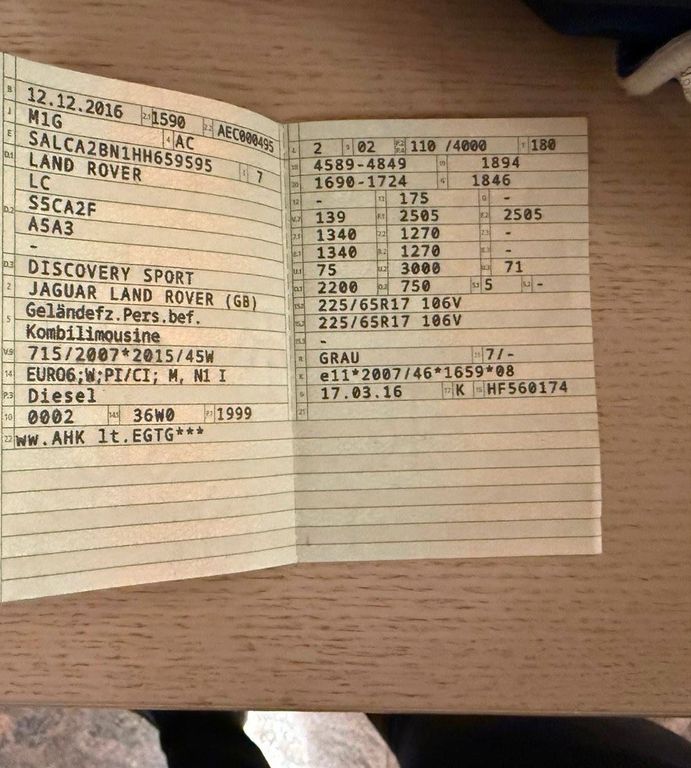 B 12.12.2016 2.1 1590 2.2 AEC000495
J M1G 4 AC
E SALCA2BN1HH659595 3 7
D.1 LAND ROVER
LC
D.2 S5CA2F
A5A3
-
D.3 DISCOVERY SPORT
2 JAGUAR LAND ROVER (GB)
5 Geländefz.Pers.bef.
Kombilimousine
V.9 715/2007*2015/45W
14 EURO6;W;PI/CI; M, N1 I
P.3 Diesel
10 0002 14.1 36W0 P.1 1999
22 ww.AHK lt.EGTG***
L 2 9 02 P.2 P.4 110 /4000 T 180
18 4589-4849 19 1894
20 1690-1724 G 1846
12 - 13 175 Q -
V.7 139 F.1 2505 F.2 2505
7.1 1340 7.2 1270 7.3 -
8.1 1340 8.2 1270 8.3 -
U.1 75 U.2 3000 U.3 71
O.1 2200 O.2 750 S.1 5 S.2 -
15.1 225/65R17 106V
15.2 225/65R17 106V
15.3 -
R GRAU 11 7/-
K e11*2007/46*1659*08
6 17.03.16 17 K 16 HF560174
21